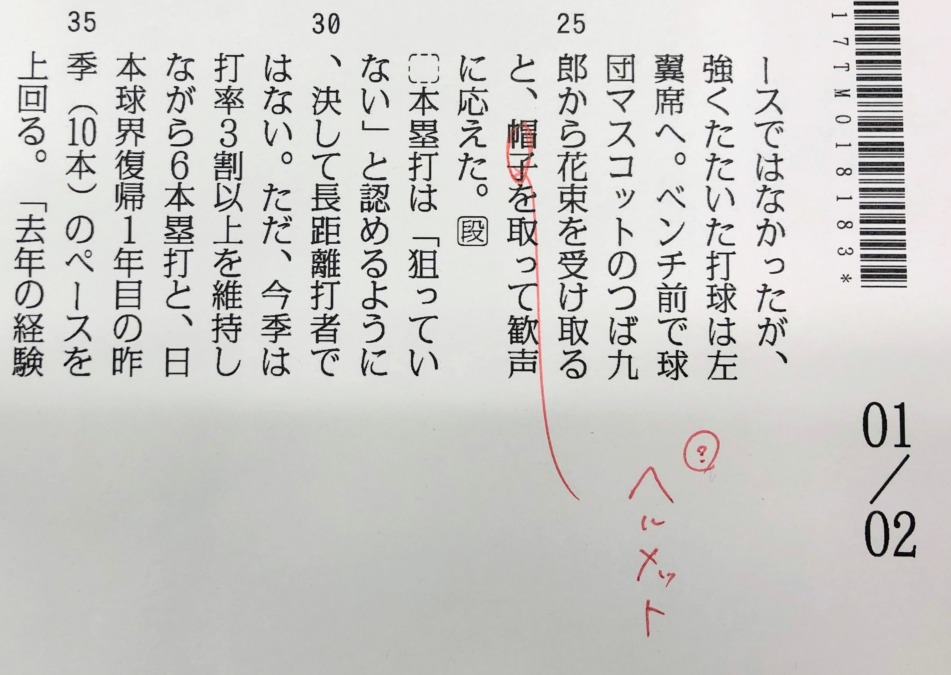 17TM018183*
01/02
ースではなかったが、
強くたたいた打球は左
翼席へ。ベンチ前で球
団マスコットのつば九
25
郎から花束を受け取る
と、帽子を取って歓声
に応えた。段
本塁打は「狙ってい
ない」と認めるように
30
、決して長距離打者で
はない。ただ、今季は
打率3割以上を維持し
ながら6本塁打と、日
本球界復帰1年目の昨
35
季（10本）のペースを
上回る。「去年の経験
?
ヘルメット